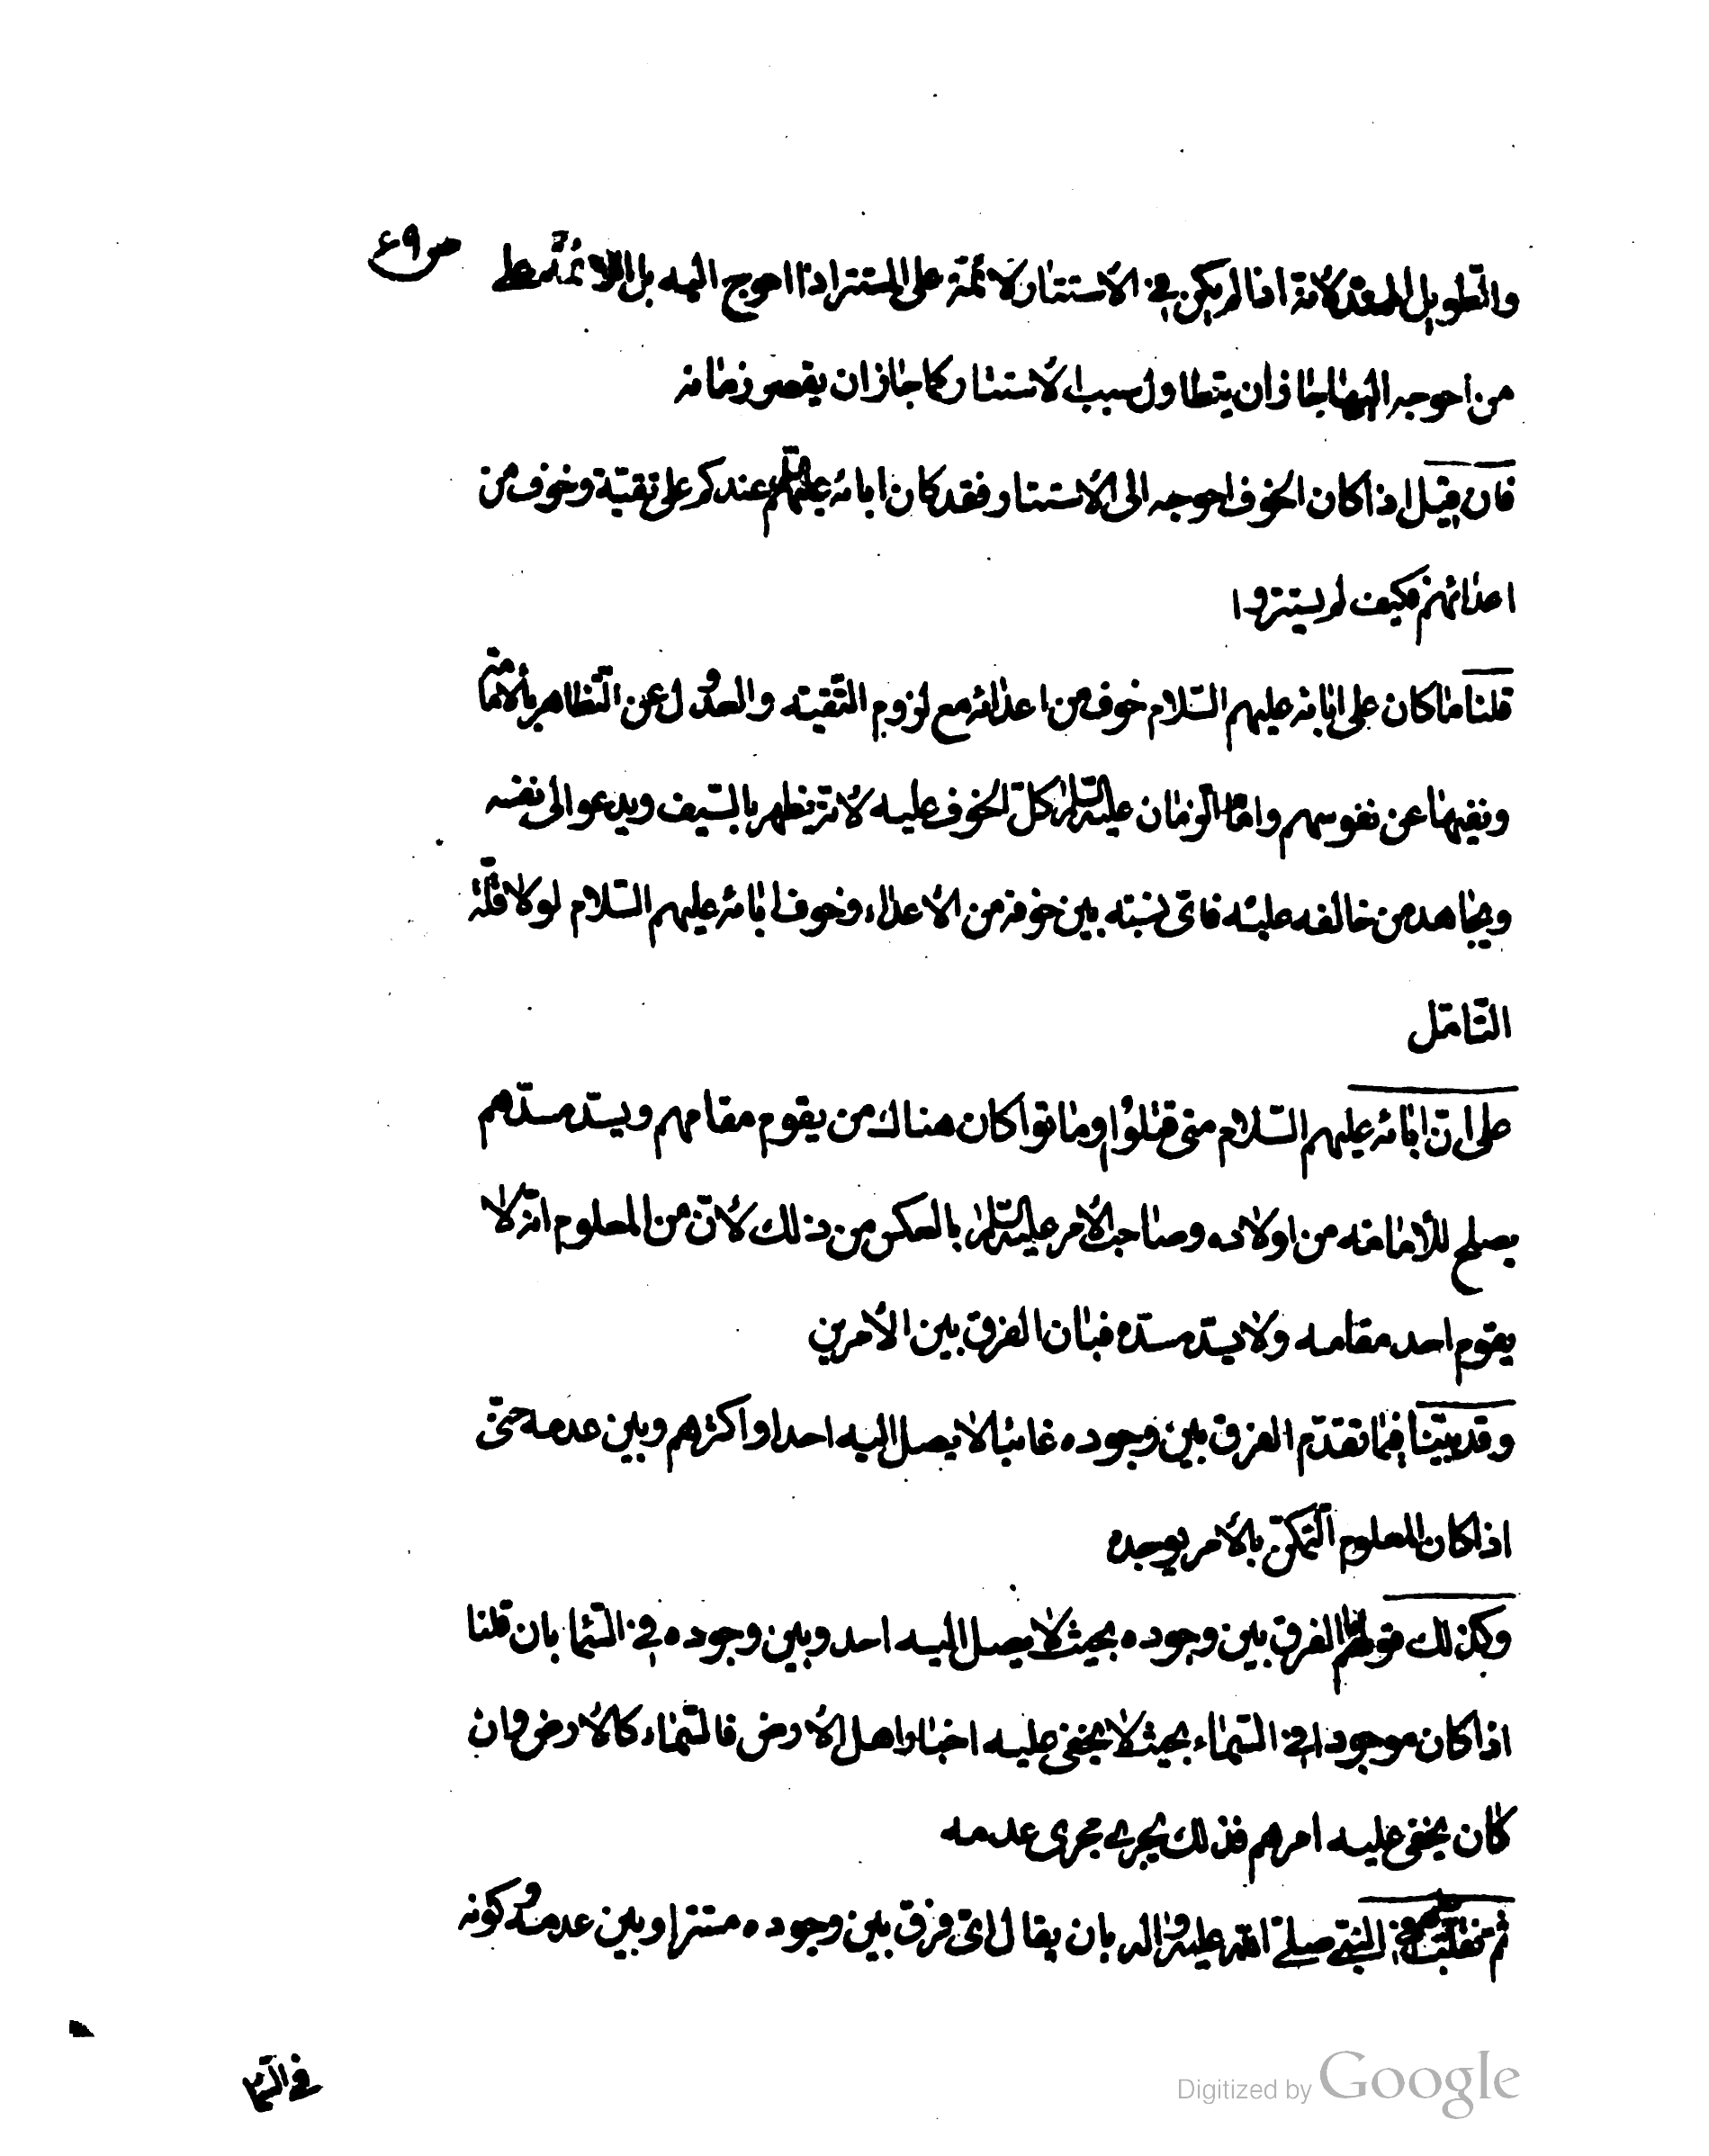 ص٩٤
والطويل الممتد لانه اذا لم يكن في الاستتار لائمة على المستتر اذا احوج اليه بل اللائمة على
من احوجه اليها جاز ان يتطاول سبب الاستتار كما جاز ان يقصر زمانه
فان قيل اذا كان الخوف احوجه الى الاستتار فقد كان ابائه عليهم السلام عندكم على تقية وخوف من
اعدائهم فكيف لم يستتروا
قلنا ما كان على ابائه عليهم السلام خوف من اعدائه مع لزوم التقيته والعدول عن التظاهر بالامامة
ونفيها عن نفوسهم وامام الزمان عليه السلام كل الخوف عليه لانه يظهر بالسيف ويدعو الى نفسه
ويجاهد من خالفه عليه فاى نسبته بين خوفه من الاعداء وخوف ابائه عليهم السلام لولا قلة
التامل
على ان ابائه عليهم السلام متى قتلوا او ماتوا كان هناك من يقوم مقامهم ويسد مسدهم
يصلح للامامة من اولاده وصاحب الامر عليه السلام بالعكس من ذلك لان من المعلوم انه لا
يقوم احد مقامه ولا يسد مسده فبان الفرق بين الامرين
وقد بينا فيما تقدم الفرق بين وجوده غائبا لا يصل اليه احد او اكثرهم وبين عدمه حتى
اذا كان المعلوم التمكن بالامر يوجده
وكذلك قولهم ما الفرق بين وجوده بحيث لا يصل اليه احد وبين وجوده في السماء بان قلنا
اذا كان موجودا في السماء بحيث لا يخفى عليه اخبار اهل الارض فالسماء كالارض وان
كان يخفى عليه امرهم فذلك يجرى مجرى عدمه
ثم نقلب عليهم في النبي صلى الله عليه واله بان يقال اى فرق بين وجوده مستترا وبين عدمه وكونه
في السماء
Digitized by Google